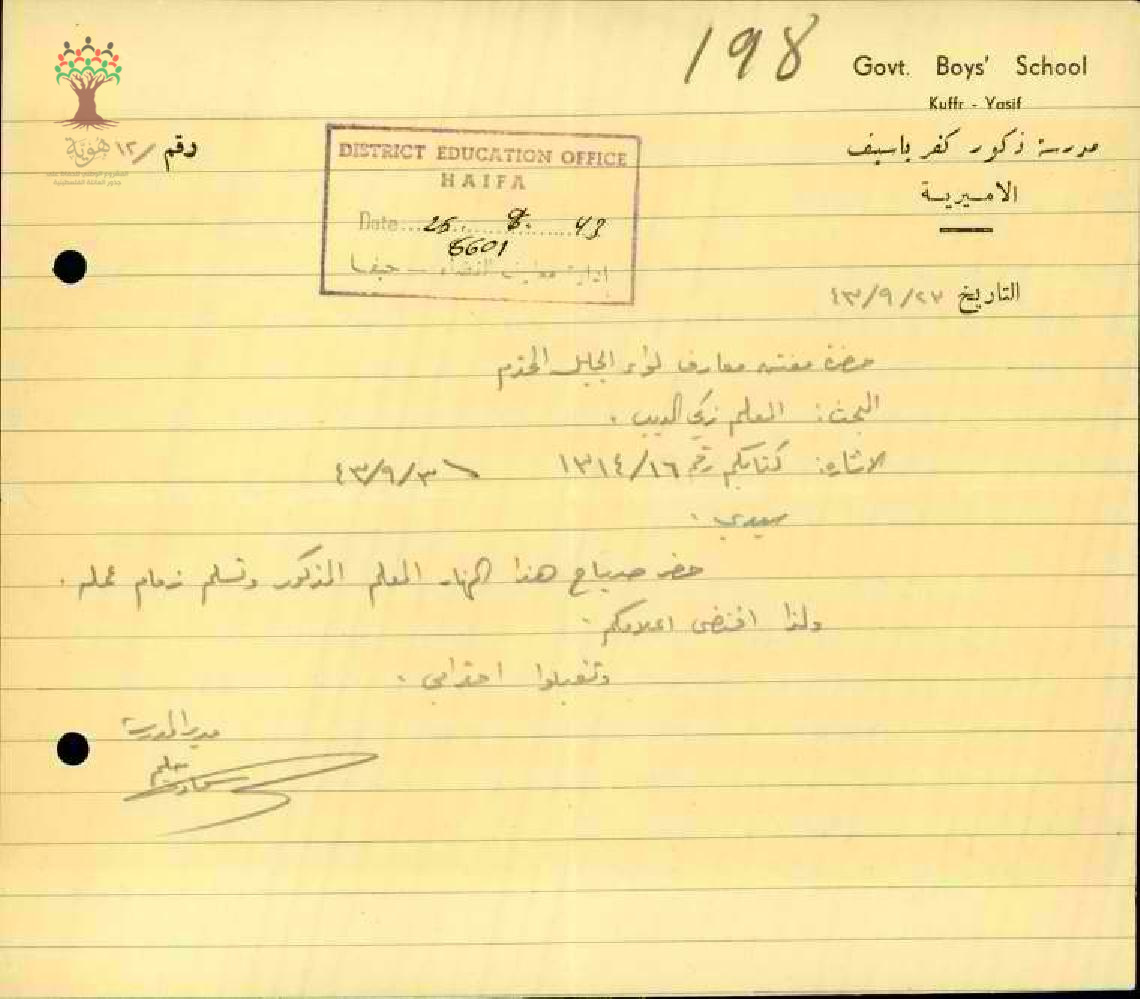 198
Govt. Boys' School
Kuffr - Yasif
مدرسة ذكور كفر ياسيف
الاميرية
رقم /١٢
هوية
DISTRICT EDUCATION OFFICE
HAIFA
Date... 8. 43
6601
ادارة معارف القضاء – حيفا
التاريخ ٤٣/٩/٢٧
حضرة مفتش معارف لواء الجليل المحترم
البحث: المعلم زكي الديب.
الاشارة: كتابكم رقم ١٣١٤/١٦ ٤٣/٩/٣
سيدي.
حضر صباح هذا النهار المعلم المذكور وتسلم زمام عمله.
ولذا اقتضى اعلامكم.
وتقبلوا احترامي.
مدير المدرسة